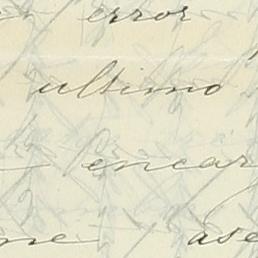 error
ultimo
encar
ne ase